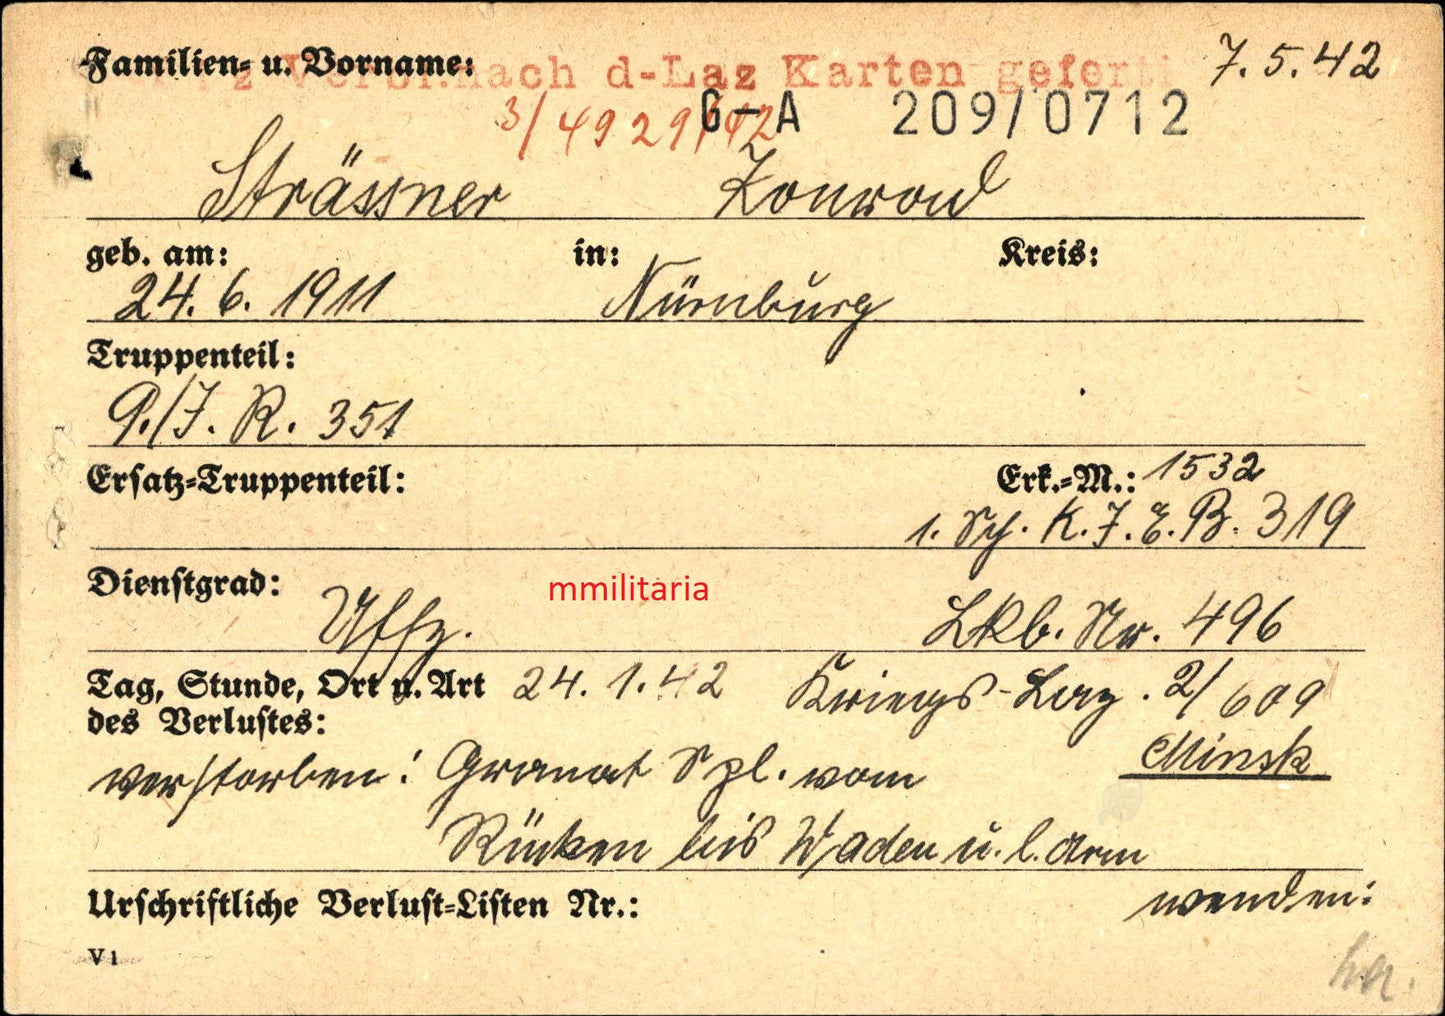 Familien- u. Vorname: nach d-Laz Karten geferti 7.5.42
3/4929/42 G-A 209/0712
Strässner Konrad
geb. am: in: Kreis:
24. 6. 1911 Nürnburg
Truppenteil:
9./J. R. 351
Ersatz-Truppenteil: Erk.-M.: 1532
1. Sch. K. J. E. B. 319
Dienstgrad:
mmilitaria
Uffz. Lkb. Nr. 496
Tag, Stunde, Ort u. Art 24. 1. 42 Kriegs-Laz. 2/609
des Verlustes:
Minsk
verstorben: Granat Spl. vom
Rücken bis Waden u. l. Arm
Urschriftliche Verlust-Listen Nr.: wenden:
V 1